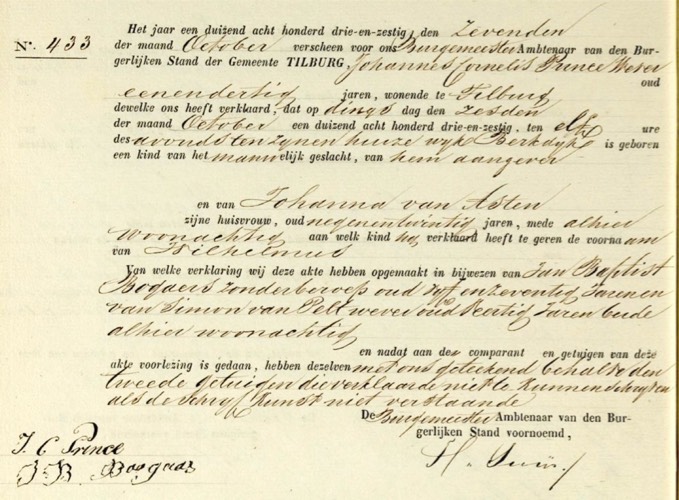 Nº. 433
Het jaar een duizend acht honderd drie-en-zestig, den Zevenden
der maand October verscheen voor ons Burgemeester Ambtenaar van den Bur-
gerlijken Stand der Gemeente TILBURG, Johannes Cornelis Prince Wever
oud
eenendertig jaren, wonende te Tilburg
dewelke ons heeft verklaard, dat op dings dag den zesden
der maand October een duizend acht honderd drie-en-zestig, ten elf ure
des avonds ten zynen huize wyk Berkdyk is geboren
een kind van het manwelijk geslacht, van hem aangever
en van Johanna van Asten
zijne huisvrouw, oud negenentwintig jaren, mede alhier
woonachtig aan welk kind hij verklaard heeft te geven de voornaam
van Wilhelmus
Van welke verklaring wij deze akte hebben opgemaakt in bijwezen van Jan Baptist
Bogaers zonder beroep oud vyf en zeventig Jaren en
van Simon van Pelt wever oud Veertig Jaren beide
alhier woonachtig
en nadat aan den comparant en getuigen van deze
akte voorlezing is gedaan, hebben dezelven met ons geteekend behalve den
tweede getuigen die verklaarde niet te kunnen schryven
als de schryfkunst niet verstaande
De Burgemeester Ambtenaar van den Bur-
gerlijken Stand voornoemd,
J. C Prince
J. B. Bogaars